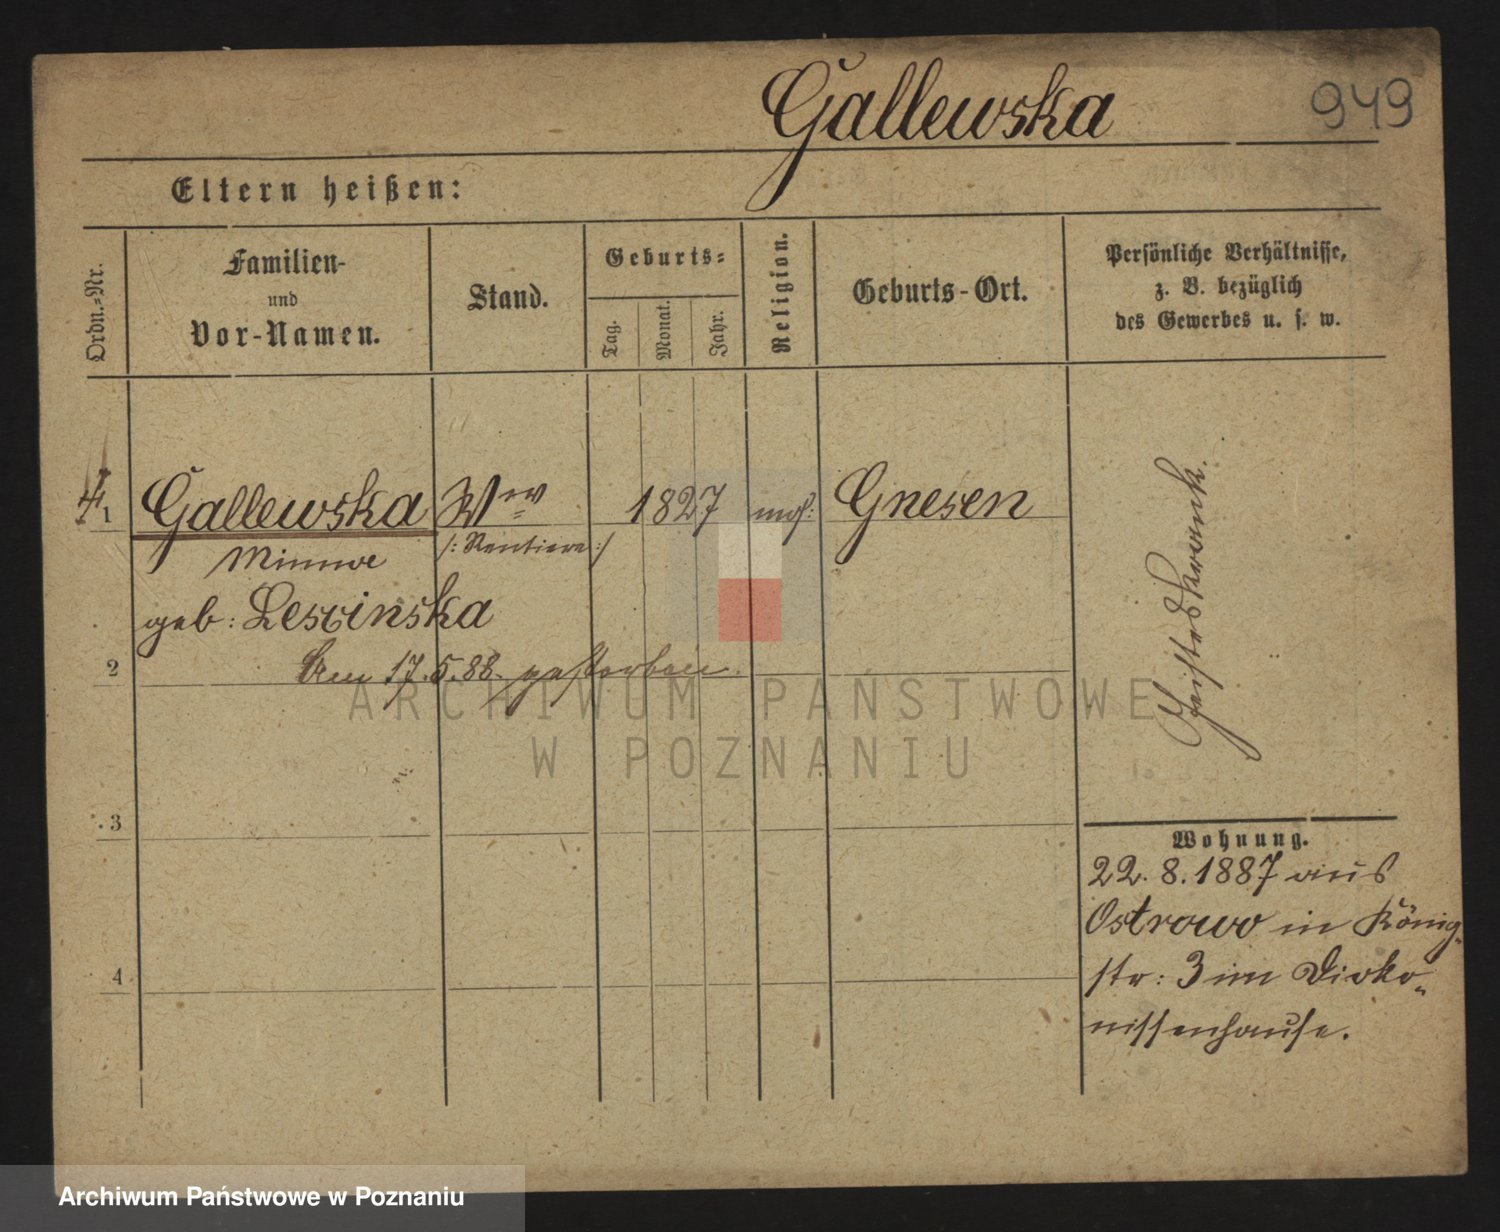 Gallewska
949
Eltern heißen:
Ordn.-Nr.
Familien-
und
Vor-Namen.
Stand.
Geburts-
Tag.
Monat.
Jahr.
Religion.
Geburts-Ort.
Persönliche Verhältnisse,
z. B. bezüglich
des Gewerbes u. s. w.
1
Gallewska Wwe 1827 mos: Gnesen
Minna /: Rentiere :/
geb: Lesvinska
2
Am 17.5.88. gestorben.
Geisteskrank.
ARCHIWUM PAŃSTWOWE
W POZNANIU
3
Wohnung.
22. 8. 1887 aus
Ostrowo in König-
str: 3 im Diako-
nissenhause.
4
Archiwum Państwowe w Poznaniu